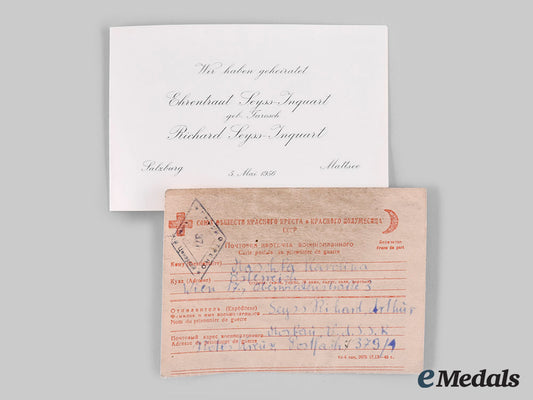 Wir haben geheiratet
Ehrentraut Seyss-Inquart
geb. Tarosch
Richard Seyss-Inquart
Salzburg
5. Mai 1956
Mattsee
СОЮЗ ОБЩЕСТВ КРАСНОГО КРЕСТА и КРАСНОГО ПОЛУМЕСЯЦА
СССР
Почтовая карточка военнопленного
Carte postale du prisonnier de guerre
Бесплатно
Franc de port
Кому (Destinataire) Karolina
Куда (Adresse) Österreich
Wien
Отправитель (Expéditeur) Seyss Richard Arthur
Фамилия и имя военнопленного
Nom du prisonnier de guerre
Почтовый адрес военнопленного Moskau, U.d.S.S.R.
Adresse du prisonnier de guerre
Rotes Kreuz Postfach 379/1
eMedals